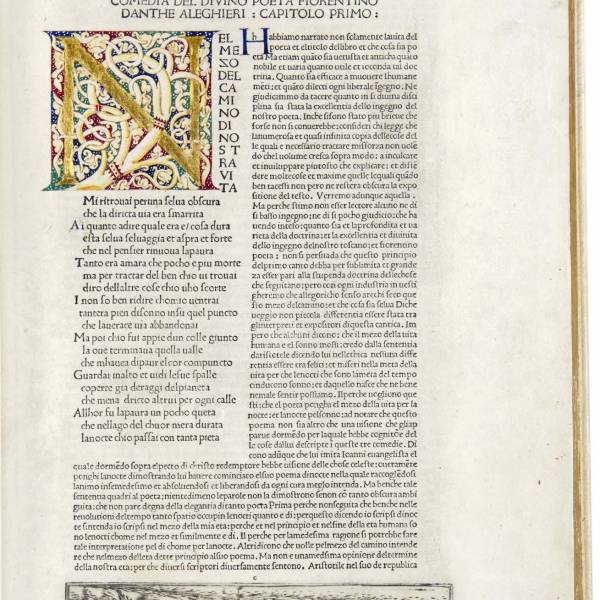 COMEDIA DEL DIVINO POETA FIORENTINO
DANTHE ALEGHIERI : CAPITOLO PRIMO :
NEL
MEZO
DEL CA
MINO
DI NO
STRA
VITA
Mi ritrouai per una selua obscura
che la diricta uia era smarrita
Ai quanto adire quale era e/ cosa dura
esta selua seluaggia et aspra et forte
che nel pensier rinuoua lapaura
Tanto era amara che pocho e piu morte
ma per tractar del ben chio ui trouai
diro dellaltre cose chio uho scorte
I non so ben ridire chomio uentrai
tantera pien disonno insu quel puncto
che lauerace uia abbandonai
Ma poi chio fui appie dun colle giunto
la oue terminaua quella ualle
che mhauea dipaur el cor compuncto
Guardai inalto et uidi lesue spalle
coperte gia deraggi delpianeta
che mena dricto altrui per ogni calle
Allhor fu lapaura un pocho queta
che nellago del chuor mera durata
lanocte chio passai con tanta pieta
Habbiamo narrato non solamente lauita del
poeta et eltitolo dellibro et che cosa sia po
eta Ma etiam quãto sia uetusta et anticha quãto
nobile et uaria quanto utile et iocunda tal doc
trina. Quanto sia efficace a muouere lhumane
mẽti: et quãto dilecti ogni liberale ĩgegno. Ne
giudicammo da tacere quanto in si diuina disci
plina sia stata la excellentia dello ingegno del
nostro poeta. Inche sisono stato piu brieue che
forse non si conuerrebbe: consideri chi legge che
lanumerosa et quasi infinita copia delle cose del
le quali e necessario tractare misforza non uolẽ
do chel uolume cresca sopra modo: a inculcare
et inuiluppare piutosto che explicare: et disten
dere molte cose et maxime quelle lequali quãdo
ben tacessi non pero ne restera obscura la expo
sitione del testo. Verremo adunque aquella.
Ma perche stimo non esser lectore alcuno ne di
si basso ingegno: ne di si pocho giudicio: che ha
uendo inteso: quanto sia et laprofondita et ua
rieta della doctrina: et la excellentia et diuinita
dello ingegno delnostro toscano: et fiorentino
poeta: non si persuada che questo principio
delprimo canto debba per sublimita et grande
za esser pari alla stupenda doctrina delle cose
che seguitano: pero con ogni industria in uesti
gheremo che allegoricho senso arechi seco que
sto mezo delcamino: et che cosa sia selua Diche
ueggio non piccola differentia essere stata tra
glinterpreti et expositori di questa cantica. Im
pero che alchuni dicono: che il mezo della uita
humana e el sonno mossi: credo dalla sententia
daristotele dicendo lui nellethica nessuna diffe
rentia essere tra efelici: et miseri nella meta del
la uita perche lenocti che sono lameta del tempo
cinducono sonno: et daquello nasce che ne bene
nemale sentir possiamo. Ilperche uogliono que
sti: che el poeta pongha el mezo della uita per la
nocte: et lanocte pelsonno: ad notare che questo
poema non sia altro che una uisione che gliap
parue dormendo per laquale hebbe cognitiõe del
le cose dallui descripte ĩ queste tre comedie. Di
cono adũque che lui imita Ioanni euangelista el
quale dormẽdo sopra elpecto di christo redemptore hebbe uisione delle chose celeste: oueramẽte
ponghi lanocte dimostrando lui hauere cominciato elsuo poema dinocte nella quale raccogliẽdosi
lanimo insemedesimo et absoluendosi et liberandosi da ogni cura meglo intenda. Ma benche tale
sententia quadri al poeta; nientedimeno leparole non la dimostrono senon cõ tanto obscura ambi
guita: che non pare degna della elegantia ditanto poeta Prima perche nonseguita che benche nelle
reuolutioni deltempo tanto spatio occupin lenocti quanto e di: perquesto dicendo io scripsi dinoc
te sintenda io scripsi nel mezo della mia eta: perche et nel principio et nelfine della eta humana so
no lenocti chome nel mezo et similmente e di. Il perche per lamedesima ragione si potrebbe fare
tale interpretatione pel di chome per lanocte. Altri dicono che uolle pelmezo del camino intende
re che nelmezo dellera dette principio alsuo poema. Ma non e unamedesima opinione del termine
della nostra eta: per che diuersi scriptori diuersamente sentono. Aristotile nel suo de republica